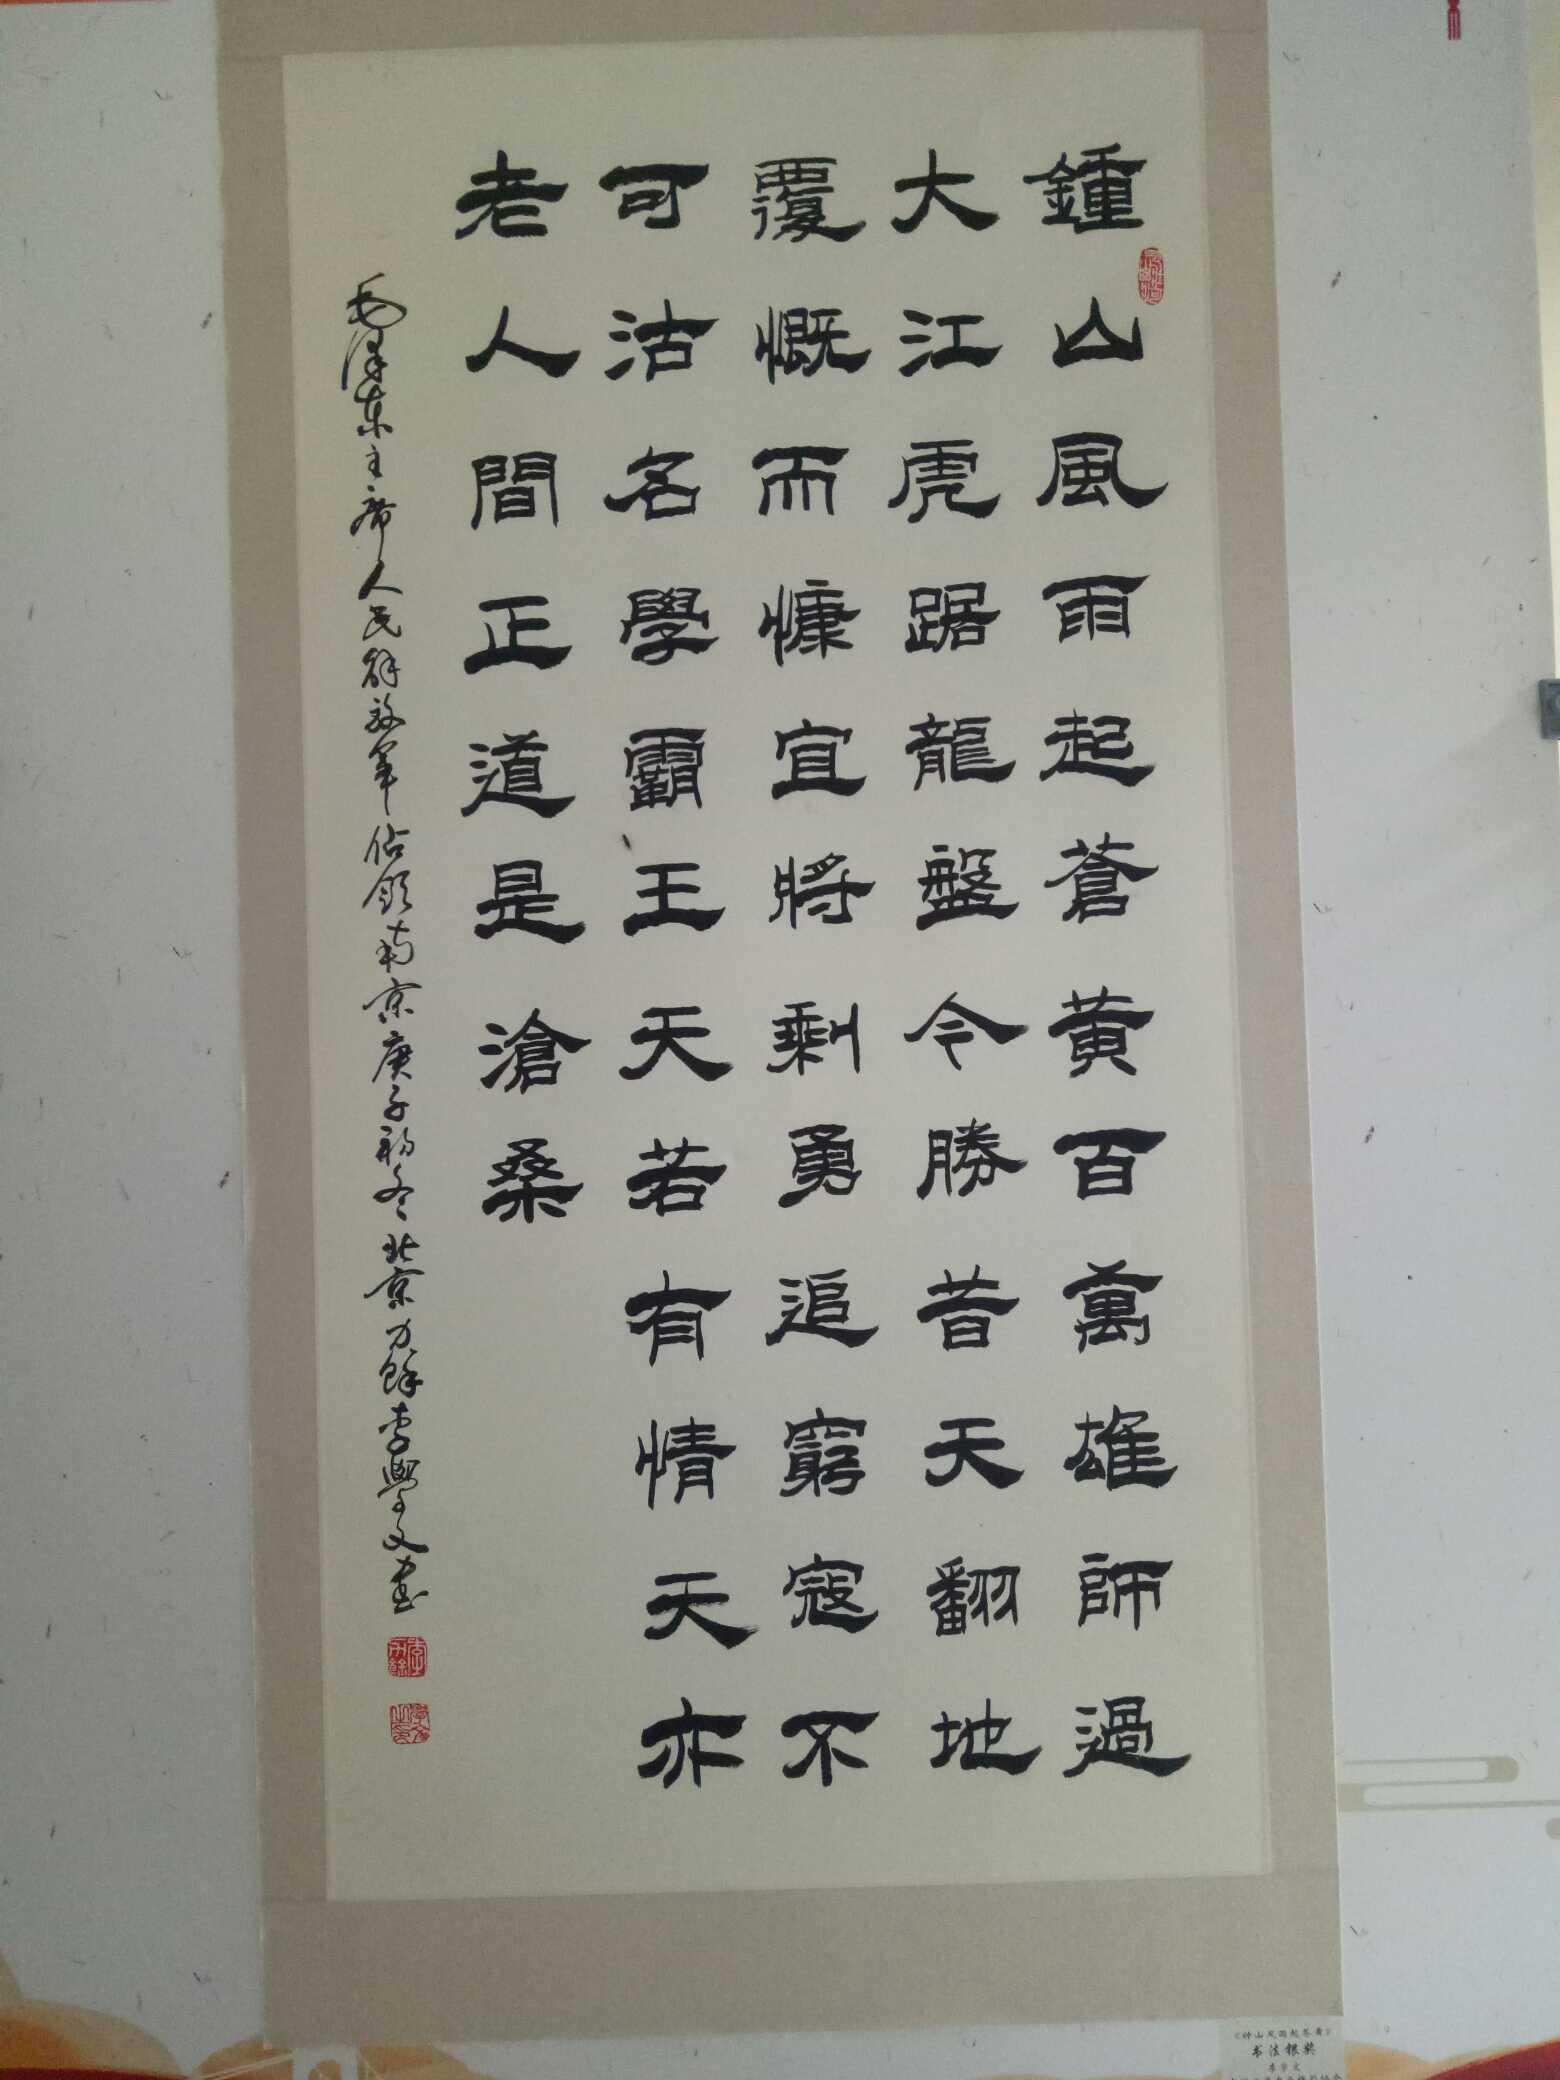 鍾山風雨起蒼黄百萬雄師過
大江虎踞龍盤今勝昔天翻地
覆慨而慷宜將剩勇追窮寇不
可沽名學霸王天若有情天亦
老人間正道是滄桑
毛泽东主席人民解放軍佔領南京庚子初冬北京刀餘李學文書
《钟山风雨起苍黄》
书法银奖
李学文